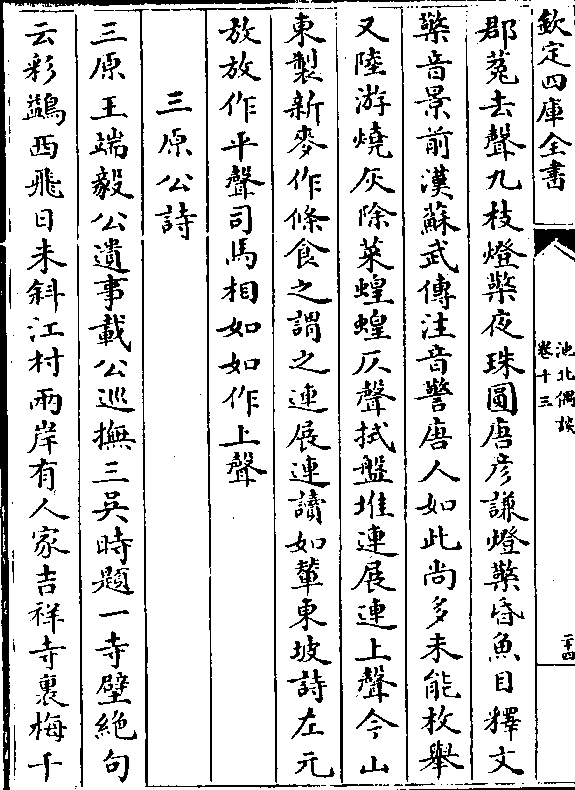 欽定四庫全書
池北偶談
卷十三
二十四
郡菟去聲九枝燈檠夜珠圓唐彦謙燈檠昏魚目釋文
檠音景前漢蘇武傳注音警唐人如此尚多未能枚舉
又陸游燒灰除菜蝗蝗仄聲拭盤堆連展連上聲今山
東製新麥作條食之謂之連展連讀如輦東坡詩左元
放放作平聲司馬相如如作上聲
三原公詩
三原王端毅公遺事載公巡撫三吳時題一寺壁絶句
云彩鷁西飛日未斜江村兩岸有人家吉祥寺裏梅千